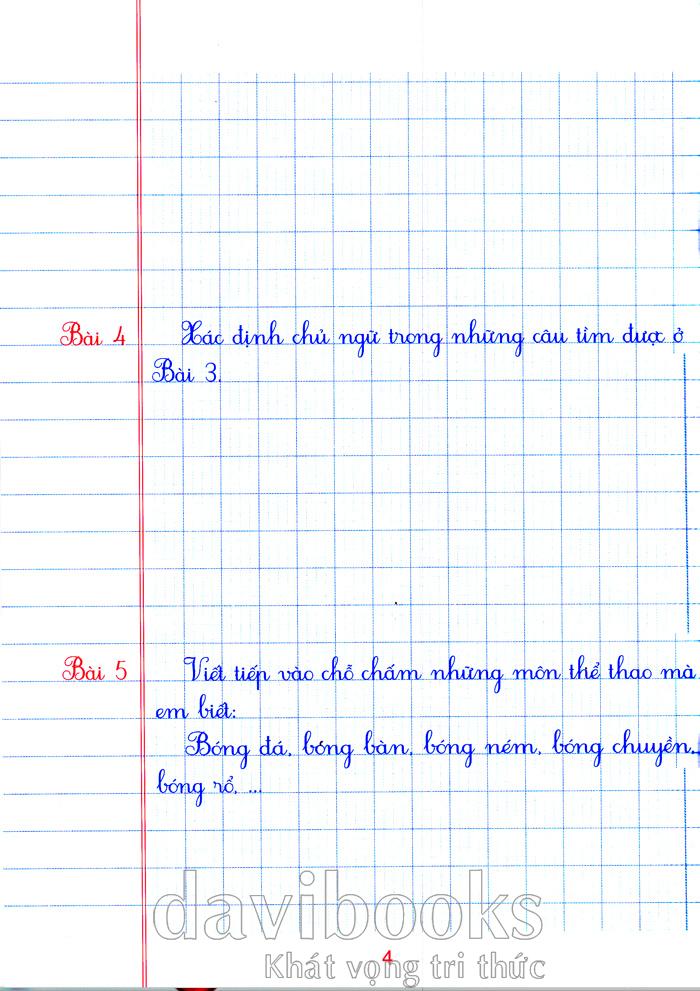 Bài 4 Xác định chủ ngữ trong những câu tìm được ở
Bài 3.
Bài 5 Viết tiếp vào chỗ chấm những môn thể thao mà
em biết:
Bóng đá, bóng bàn, bóng ném, bóng chuyền,
bóng rổ, ...
davibooks
4
Khát vọng tri thức